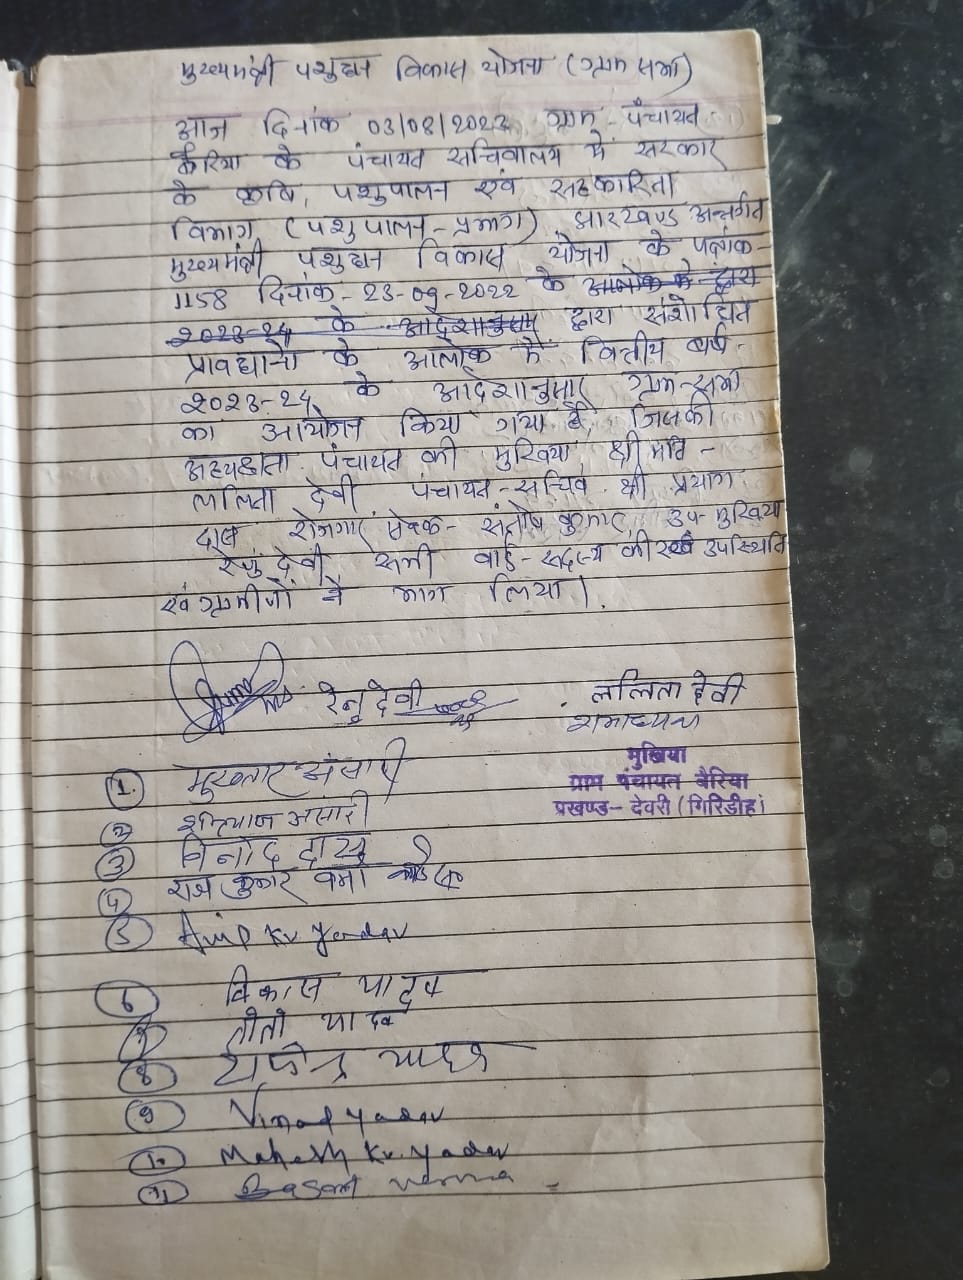 मुख्यमंत्री पशुधन विकास योजना (ग्राम सभा)
आज दिनांक 03/08/2023 ग्राम-पंचायत
के पंचायत सचिवालय में सरकार
के कृषि, पशुपालन एवं सहकारिता
विभाग (पशुपालन-प्रभाग) झारखण्ड अन्तर्गत
मुख्यमंत्री पशुधन विकास योजना के पत्रांक-
1158 दिनांक-23-09-2022 के आलोक के द्वारा
2023-24 के आदेशानुसार द्वारा संशोधित
प्रावधानों के आलोक में वित्तीय वर्ष-
2023-24 के आदेशानुसार ग्राम-सभा
का आयोजन किया गया है जिसकी
अध्यक्षता पंचायत की मुखिया श्रीमति-
ललिता देवी पंचायत-सचिव श्री प्रयाग
दास रोजगार सेवक-संतोष कुमार, उप-मुखिया
रेनु देवी सभी वार्ड-सदस्य की उपस्थिति
एवं ग्रामीणों ने भाग लिया।
रेनु देवी ललिता देवी
मुखिया
ग्राम पंचायत बैरिया
प्रखण्ड-देवरी (गिरिडीह)
1. मुख्तार अंसारी
2 अंसारी
3 विनोद दास
4 राज कुमार वर्मा
5 Anup Kr Yadav
6 विकास यादव
7 यादव
8 राजेन्द्र यादव
9 Vinod Yadav
10 Mahesh Kr. Yadav
11 Basant Verma